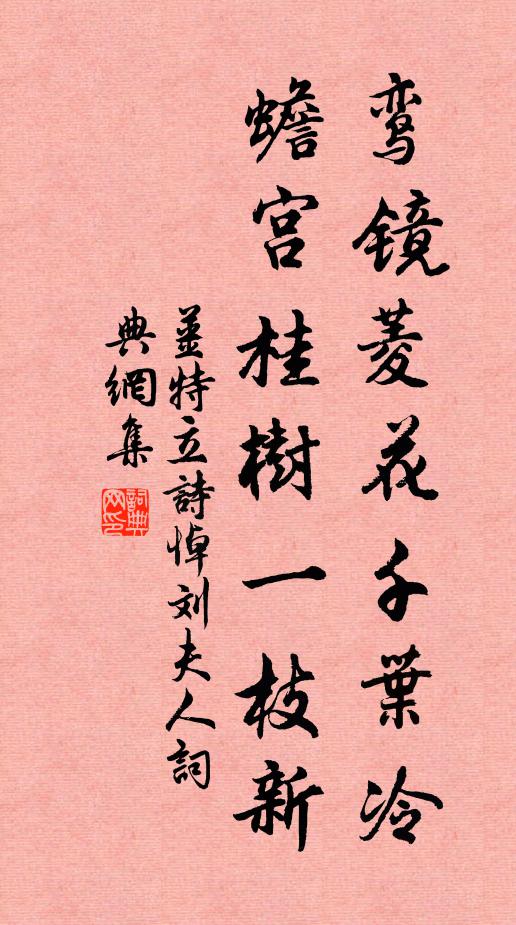 鸾镜菱花千葉冷
蟾宫桂樹一枝新
薑特立詩悼刘夫人詞
典網集
詞典
网印